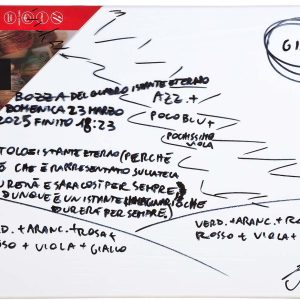 GI
BOZZA DEL QUADRO ISTANTE ETERNO
DOMENICA 23 MARZO
2025 FINITO 18:23
AZZ. +
POCO BLU +
POCHISSIMO
VIOLA
TOLO ISTANTE ETERNO (PERCHÈ
CHE È RAPPRESENTATO SULLA TELA
E SARÀ COSÌ PER SEMPRE)
DUNQUE È UN ISTANTE CHE
DURERÀ PER SEMPRE)
D. + ARANC. + ROSA +
SSO + VIOLA + GIALLO
VERD. + ARANC. + ROSA
ROSSO + VIOLA +